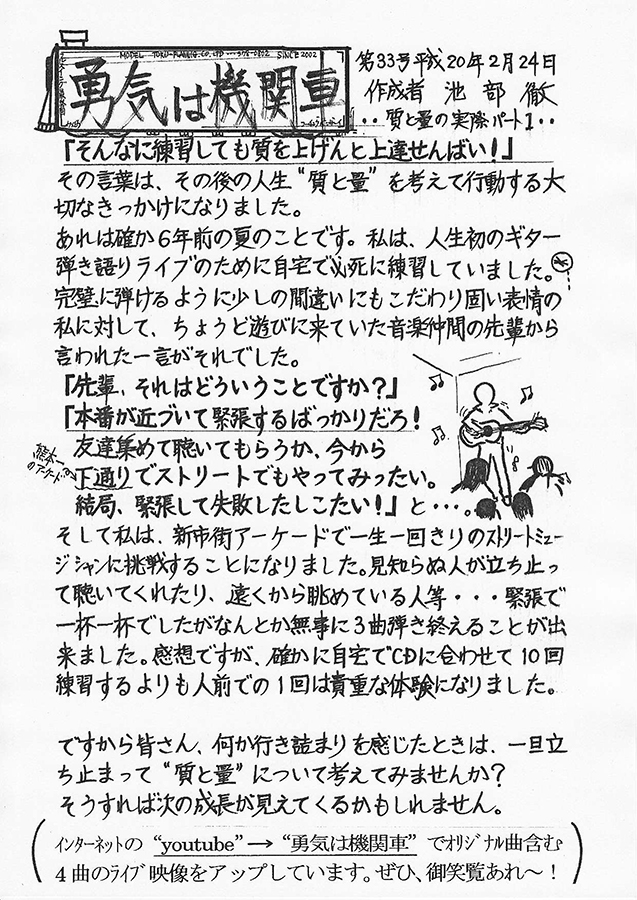 MODEL TOKU-PLANNING CO.,LTD SINCE 2002
勇気は機関車
第33号平成20年2月24日
作成者 池部徹
・・質と量の実際パート1・・
「そんなに練習しても質を上げんと上達せんばい！」
その言葉は、その後の人生“質と量”を考えて行動する大
切なきっかけになりました。
あれは確か6年前の夏のことです。私は、人生初のギター
弾き語りライブのために自宅で必死に練習していました。
完璧に弾けるように少しの間違いにもこだわり固い表情の
私に対して、ちょうど遊びに来ていた音楽仲間の先輩から
言われた一言がそれでした。
「先輩、それはどういうことですか？」
「本番が近づいて緊張するばっかりだろ！
友達集めて聴いてもらうか、今から
熊本一
のアーケード
下通りでストリートでもやってみったい。
結局、緊張して失敗したしこたい！」と・・・。
そして私は、新市街アーケードで一生一回きりのストリートミュー
ジシャンに挑戦することになりました。見知らぬ人が立ち止っ
て聴いてくれたり、遠くから眺めている人等・・・緊張で
一杯一杯でしたがなんとか無事に3曲弾き終えることが出
来ました。感想ですが、確かに自宅でCDに合わせて10回
練習するよりも人前での1回は貴重な体験になりました。
ですから皆さん、何か行き詰まりを感じたときは、一旦立
ち止まって“質と量”について考えてみませんか？
そうすれば次の成長が見えてくるかもしれません。
インターネットの “youtube”→“勇気は機関車” でオリジナル曲含む
4曲のライブ映像をアップしています。ぜひ、御笑覧あれ～！